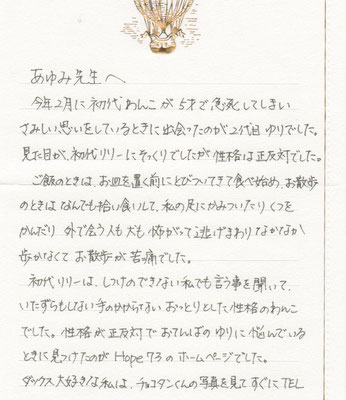 あゆみ先生へ
今年2月に初代わんこが5才で急死してしまい
さみしい思いをしているときに出会ったのが2代目ゆりでした。
見た目が、初代リリーにそっくりでしたが性格は正反対でした。
ご飯のときは、お皿を置く前にとびついてきて食べ始め、お散歩
のときはなんでも拾い食いして、私の足にかみついたりくつを
かんだり外で会う人も犬も怖がって逃げまわりなかなか
歩かなくてお散歩が苦痛でした。
初代リリーは、しつけのできない私でも言う事を聞いて、
いたずらもしない手のかからないおっとりとした性格のわんこ
でした。性格が正反対でおてんばのゆりに悩んでいる
ときに見つけたのがHope73のホームページでした。
ダックス大好きな私は、チョコタンくんの写真を見てすぐにTEL